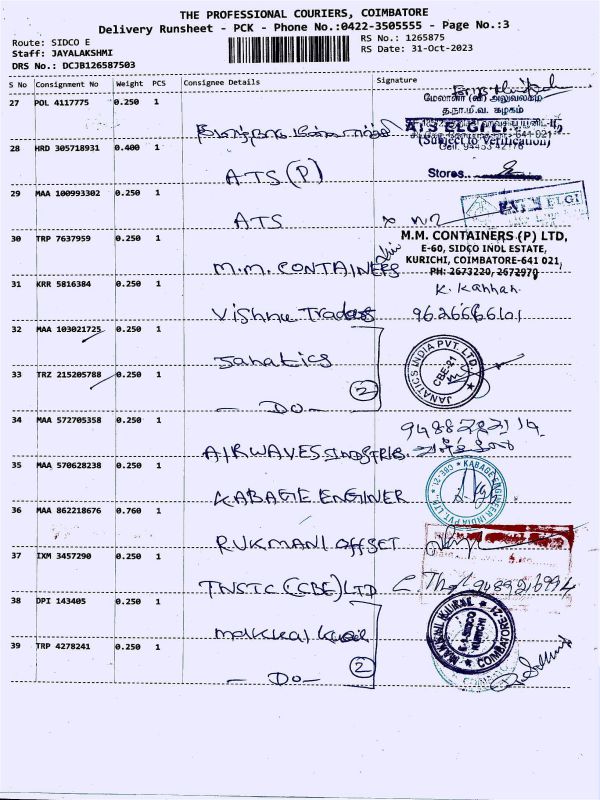 THE PROFESSIONAL COURIERS, COIMBATORE
Delivery Runsheet - PCK - Phone No.:0422-3505555 - Page No.:3
Route: SIDCO E
RS No.: 1265875
Staff: JAYALAKSHMI
RS Date: 31-Oct-2023
DRS No.: DCJB126587503
S No Consignment No Weight PCS Consignee Details Signature
27 POL 4117775 0.250 1
மேலாளர் (வ) அலுவலகம்
த.நா.மி.வ. கழகம்
ATS ELGI LTD
28 HRD 305718931 0.400 1
(Subject to Verification)
ATS (P)
Stores
29 MAA 100993302 0.250 1
ATS
ELGI
30 TRP 7637959 0.250 1
M.M. CONTAINERS
M.M. CONTAINERS (P) LTD,
E-60, SIDCO INDL ESTATE,
KURICHI, COIMBATORE-641 021,
PH: 2673220, 2672970
31 KRR 5816384 0.250 1
K. Kannan.
Vishnu Traders
9626666101
32 MAA 103021725 0.250 1
Janatics
JANATICS INDIA PVT. LTD.
CBE-21
33 TRZ 215205788 0.250 1
2
- DO -
34 MAA 572705358 0.250 1
AIRWAVES INDUSTRIES.
35 MAA 570628238 0.250 1
KABAGE ENGINER
KABAGE ENGINEER INDIA PVT. LTD. CBE-21
36 MAA 862218676 0.760 1
RUKMANI OFFSET
37 IXM 3457290 0.250 1
TNSTC (CBE) LTD
38 DPI 143405 0.250 1
Makkal Kural
MAKKAL KURAL
SIDCO
KURICHI
COIMBATORE-21
39 TRP 4278241 0.250 1
2
- DO -